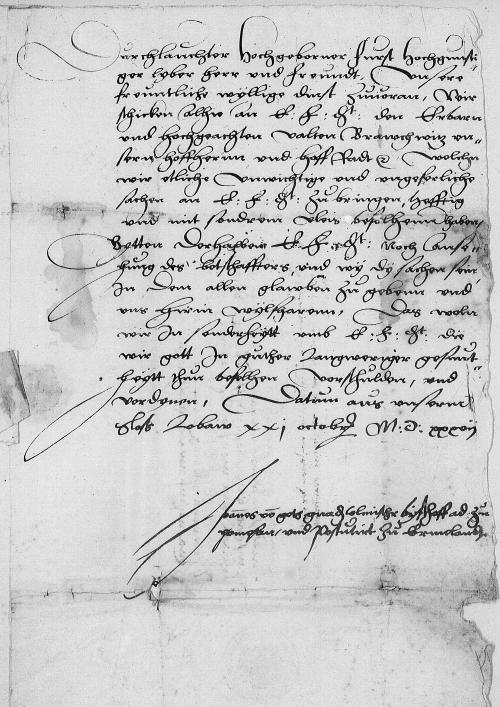 Durchlauchter Hochgeborner Furst Hochgunsti-
ger lyber herr und freundt. Unsere
freuntliche wyllige dinst zuuoran, Wir
schicken alhie an E: F: Dt: den Erbarn
und hochgeachten Valten un-
sern hoffhern und hoff Radt Welchen
wir etliche unwichtige und
sachen an E: F: Dt: zu bringen, hefftig
und mit sondrem vleis befelhenn haben,
Bytten derhalben E: F: Dt: noch
hung des botschaffters, und wy dy sachen sein
In dem allen glawben zu gebenn und
uns hirin wylfharenn, Das woln
wir In sonderheytt umb E: F: Dt: die
wir gott In guther langweriger gesunt-
heytt thun befelhen vorschulden, und
vordynen, Datum aus unserm
Slos Lobaw xxi octobris M: D: xxxvii
Joannes vo gots gnad Colmischer bisschoff ad
pomezan und Postulirt zu Ermlandt